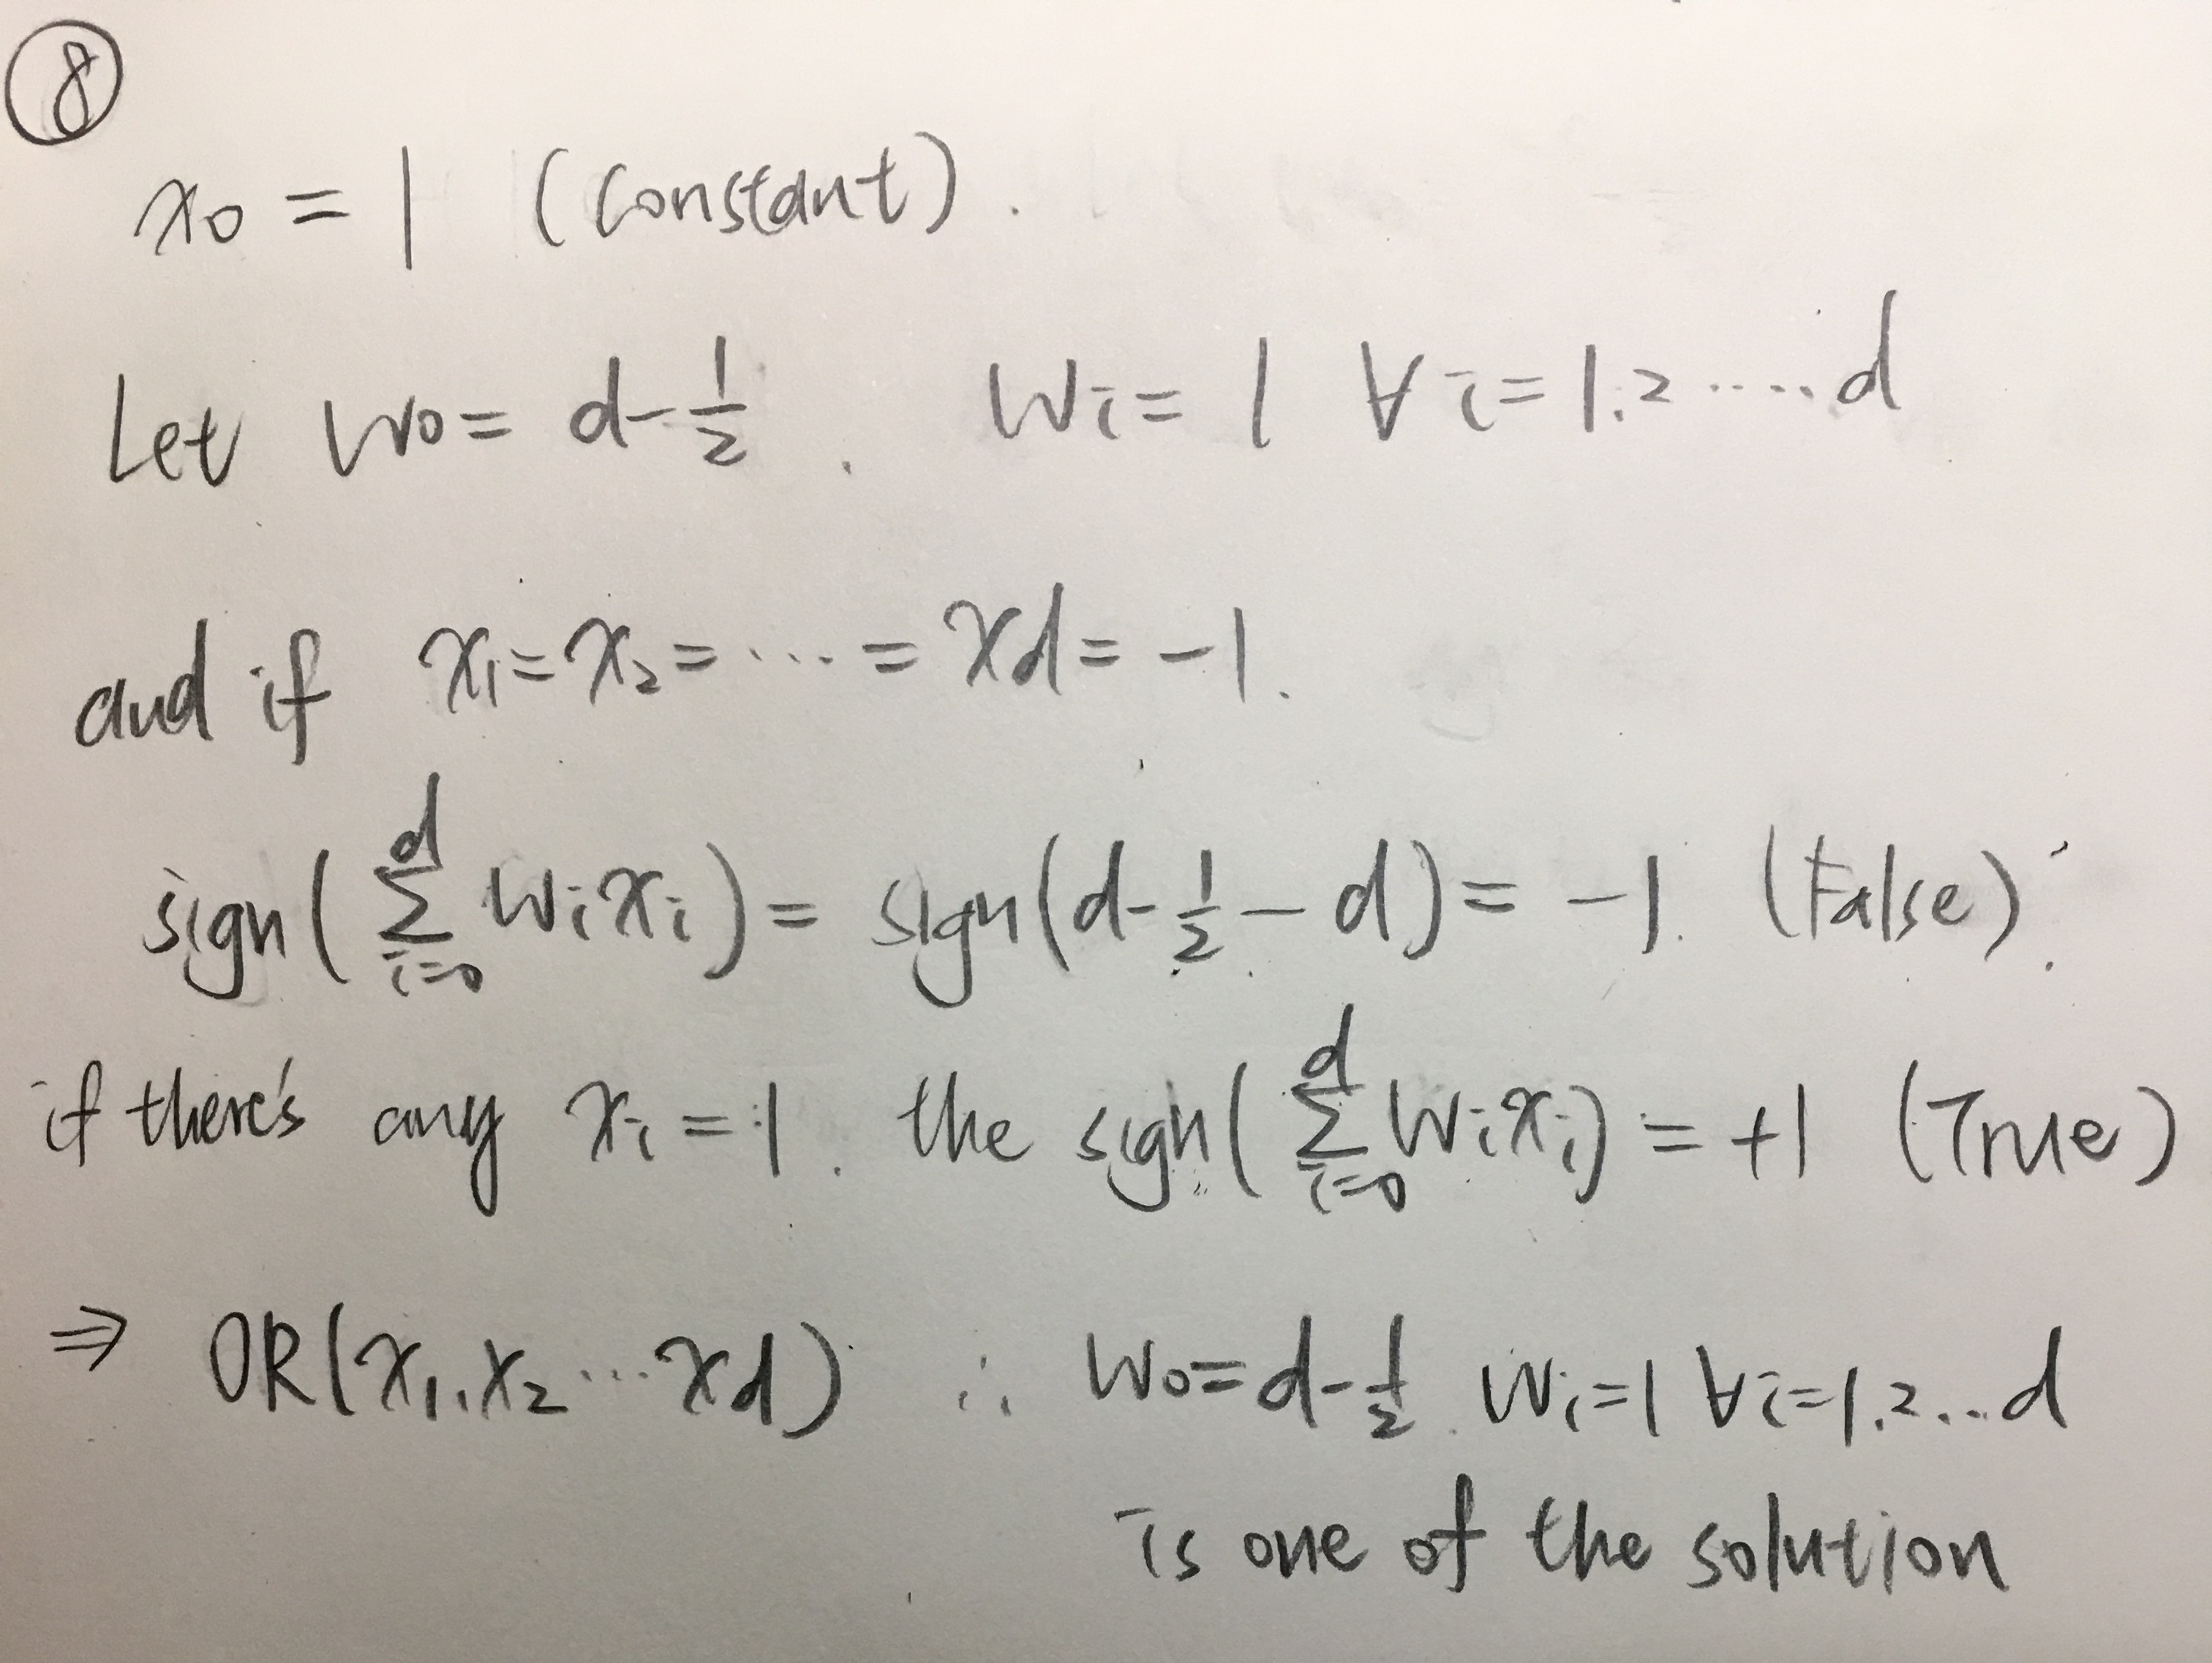 ⑧
x₀ = 1 (constant).
Let w₀ = d - 1/2. wᵢ = 1 ∀ i = 1.2 ..... d
and if x₁ = x₂ = ... = xd = -1.
sign( ∑_{i=0}^{d} wᵢxᵢ) = sign(d - 1/2 - d) = -1. (False).
if there's any xᵢ = 1. the sign( ∑_{i=0}^{d} wᵢxᵢ) = +1 (True)
⇒ OR(x₁.x₂ ... xd) ∴ w₀ = d - 1/2. wᵢ = 1 ∀ i = 1.2... d
is one of the solution